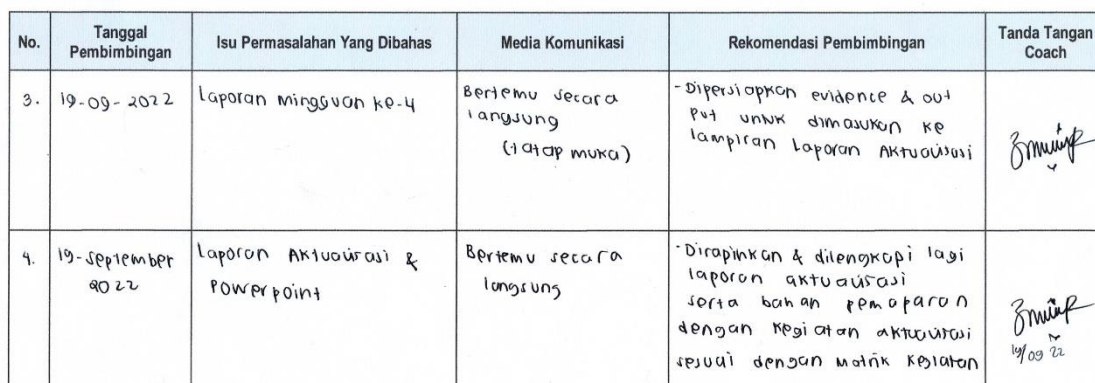 No.
Tanggal
Pembimbingan
Isu Permasalahan Yang Dibahas
Media Komunikasi
Rekomendasi Pembimbingan
Tanda Tangan
Coach
3.
19-09-2022
Laporan mingguan ke-4
Bertemu secara
langsung
(tatap muka)
- Dipersiapkan evidence & out
put untuk dimasukan ke
lampiran Laporan Aktualisasi
4.
19-September
2022
Laporan Aktualisasi &
Powerpoint
Bertemu secara
langsung
- Dirapihkan & dilengkapi lagi
laporan aktualisasi
serta bahan pemaparan
dengan kegiatan aktualisasi
sesuai dengan Matrik kegiatan
19/09 22